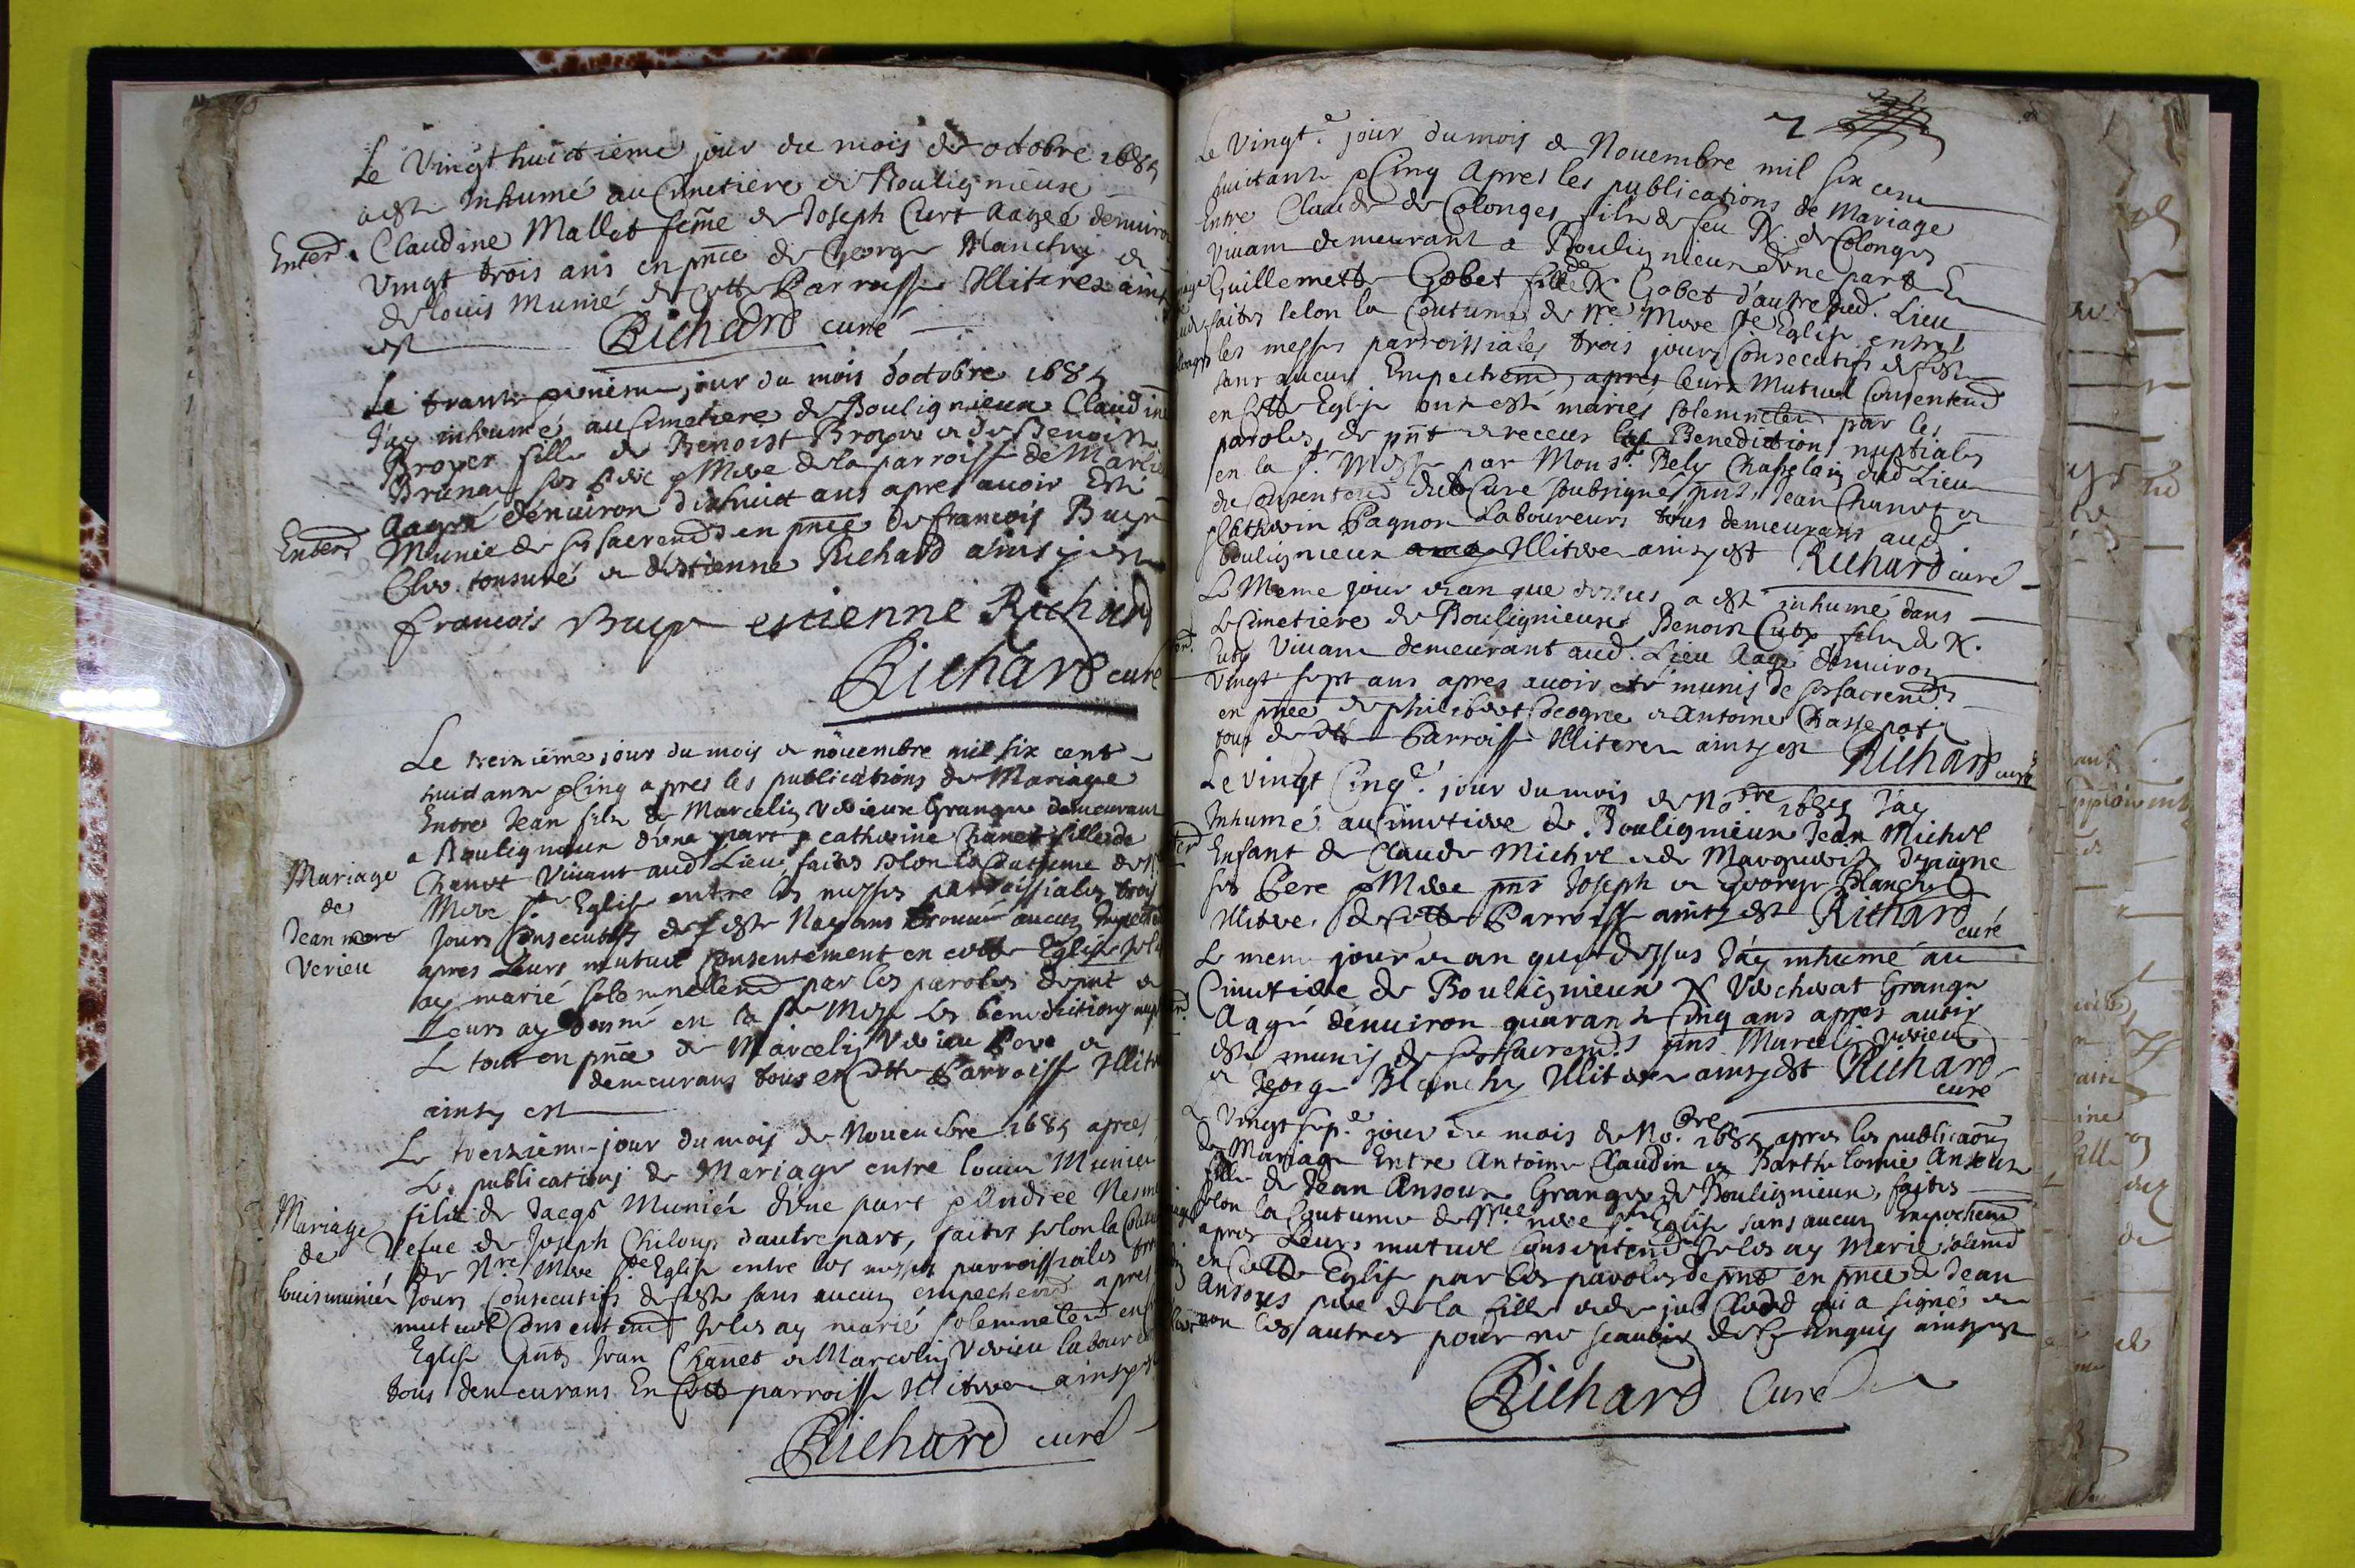 Le Vingt huictieme jour du mois de octobre 1685
a esté Inhumé au Cimetiere de Bouligneux
Enterd. Claudine Mallet feme de Joseph Curt Aagée denviron
Vingt trois ans en pnce de George Blanchy &
de louis Munié de cette Parroisse Illiteres ainsy
est Richard curé
Le trante jour du mois doctobre 1685
J'ay inhumé au Cimetiere de Bouligneux Claudine
Broyer fille de Benoist Broyer & de Benoiste
Brunan ses Pere & Mere de la parroisse de Marlieu
Aagée denuiron dixhuict ans apres auoir Esté
Enterd Munie de ses sacremens en pnce de francois Buyr
Cler tonsuré & d'estienne Richard ainsy est
francois Buyr estienne Richard
Richard curé
Le treizième jour du mois de nouembre mil six cent
huictante & Cinq apres les publications de Mariage
Entre Jean fils de Marcelin Verieux Granger demeurant
a Bouligneux d'une part & catherine Chanet fille de
Mariage Chanet Viuant aud Lieu, faites selon la Coutume de N
de Mere Ste Eglise entre les messes parroissiales trois
Jean marc Jours Consecutifs de feste Nayans trouué aucun Empechem
Verieu apres Leurs mutuel Consentement en cette Eglise Je les
ay marié solemnellemd par les paroles de pnt &
Leurs ay donné en la Ste Messe les benedictions nup
Le tout en pnce de Marcelin Verieu Pere &
demeurans tous en cette Parroisse Illiter
ainsy est
Le treizieme jour du mois de Nouembre 1685 apres
Les publications de Mariage entre louis Munier
Mariage filie de Jacqs Munier d'une part & Andrée Nesme
de Vefue de Joseph Chiloup d'autre part, faites selon la Cout
de Nre Mere Ste Eglise entre les messes parroissiales trois
louis muniér Jours Consecutifs de feste sans aucun empechemd apres
mutuel Consentemd Je les ay marié solemnelemd en
Eglise pnts Jean Chanet & Marcelin Verieu laboureurs
tous demeurans En Cette parroisse Illiteres ainsy est
Richard curé
7
Le Vingt.e jour du mois de Nouembre mil six cent
huictante & Cinq Apres les publications de Mariage
Entre Claude de Colonges fils de feu N. de Colonges
Viuant demeurant a Bouligneux d'une part &
Guillemette Gobet fille de N Gobet d'autre dud. Lieu
faites selon la Coutume de Nre Mere Ste Eglise entre
les messes parroissiales trois jours Consecutifs de feste
sans aucun Empechemd, apres leurs Mutuel Consentemd
en cette Eglise ont esté mariés solemnelemd par les
paroles, de pnt & receus les Benediction nuptiales
en la Ste Messe par Monsr. Bely Chapelain dud Lieu
du Consentemd dud Curé soubsigné pnts, Jean Chanet &
Catherin Pagnon Laboureurs tous demeurans aud
Bouligneux Illiteres ainsy est Richard curé
Le Meme jour & an que dessus a esté inhumé dans
Le Cimetiere de Bouligneux Benoist Cuty fils de N.
Cuty Viuant demeurant aud. Lieu Aagé denuiron
Vingt sept ans apres auoir esté munis de ses sacremds
en pnce de philibert Cocogne & Antoine Chassepot
tous de cette Parroisse Illiteres ainsy est Richard curé
Le vingt Cinqe. jour du mois de Nobre 1685 J'ay
Inhumé au cimetiere de Bouligneux Jean Michel
Enfant de Claude Michel & de Marguerite
ses Pere & Mere pns Joseph & George Blanchy
Illiter. de cette Parroisse ainsy est Richard
curé
Le meme jour & an que dessus J'ay inhumé au
Cimetiere de Bouligneux N Vercherat Granger
Aagé denuiron quarante Cinq ans apres auoir
esté munis de ses sacremds pns Marcelin Verieu
& George Blanchy Illiteres ainsy est Richard
curé
Le Vingt sep.e jour du mois de No.bre 1685 apres les publicaons
de Mariage Entre Antoine Claudin & Barthelomie Ansoux
fille de Jean Ansoux Granger de Bouligneux, faites
selon la Coutume de Nre mere ste Eglise sans aucun empechemd
apres Leurs mutuel Consentemd Je les ay Marié solemd
en Cette Eglise par les paroles de pnt en pnce de Jean
Ansoux pere de la fille & de qui a signé &
non les autres pour ne scauoir de ce Enquis ainsy est
Richard Curé